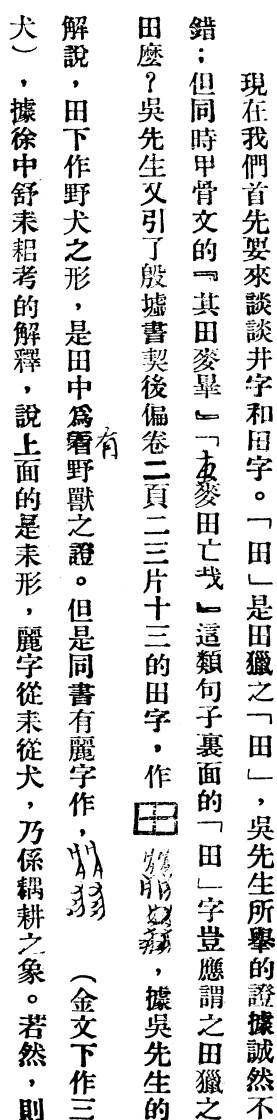 現在我們首先要來談談井字和田字。「田」是田獵之「田」，吳先生所舉的證據誠然不
錯；但同時甲骨文的『其田麥畢』「叀麥田亡𢦔』這類句子裏面的「田」字豈應謂之田獵之
田麼？吳先生又引了殷墟書契後偏卷二頁二三片十三的田字，作，據吳先生的
解說，田下作野犬之形，是田中爲有野獸之證。但是同書有麗字作，（金文下作三
犬），據徐中舒耒耜考的解釋，說上面的是耒形，麗字從耒從犬，乃係耦耕之象。若然，則